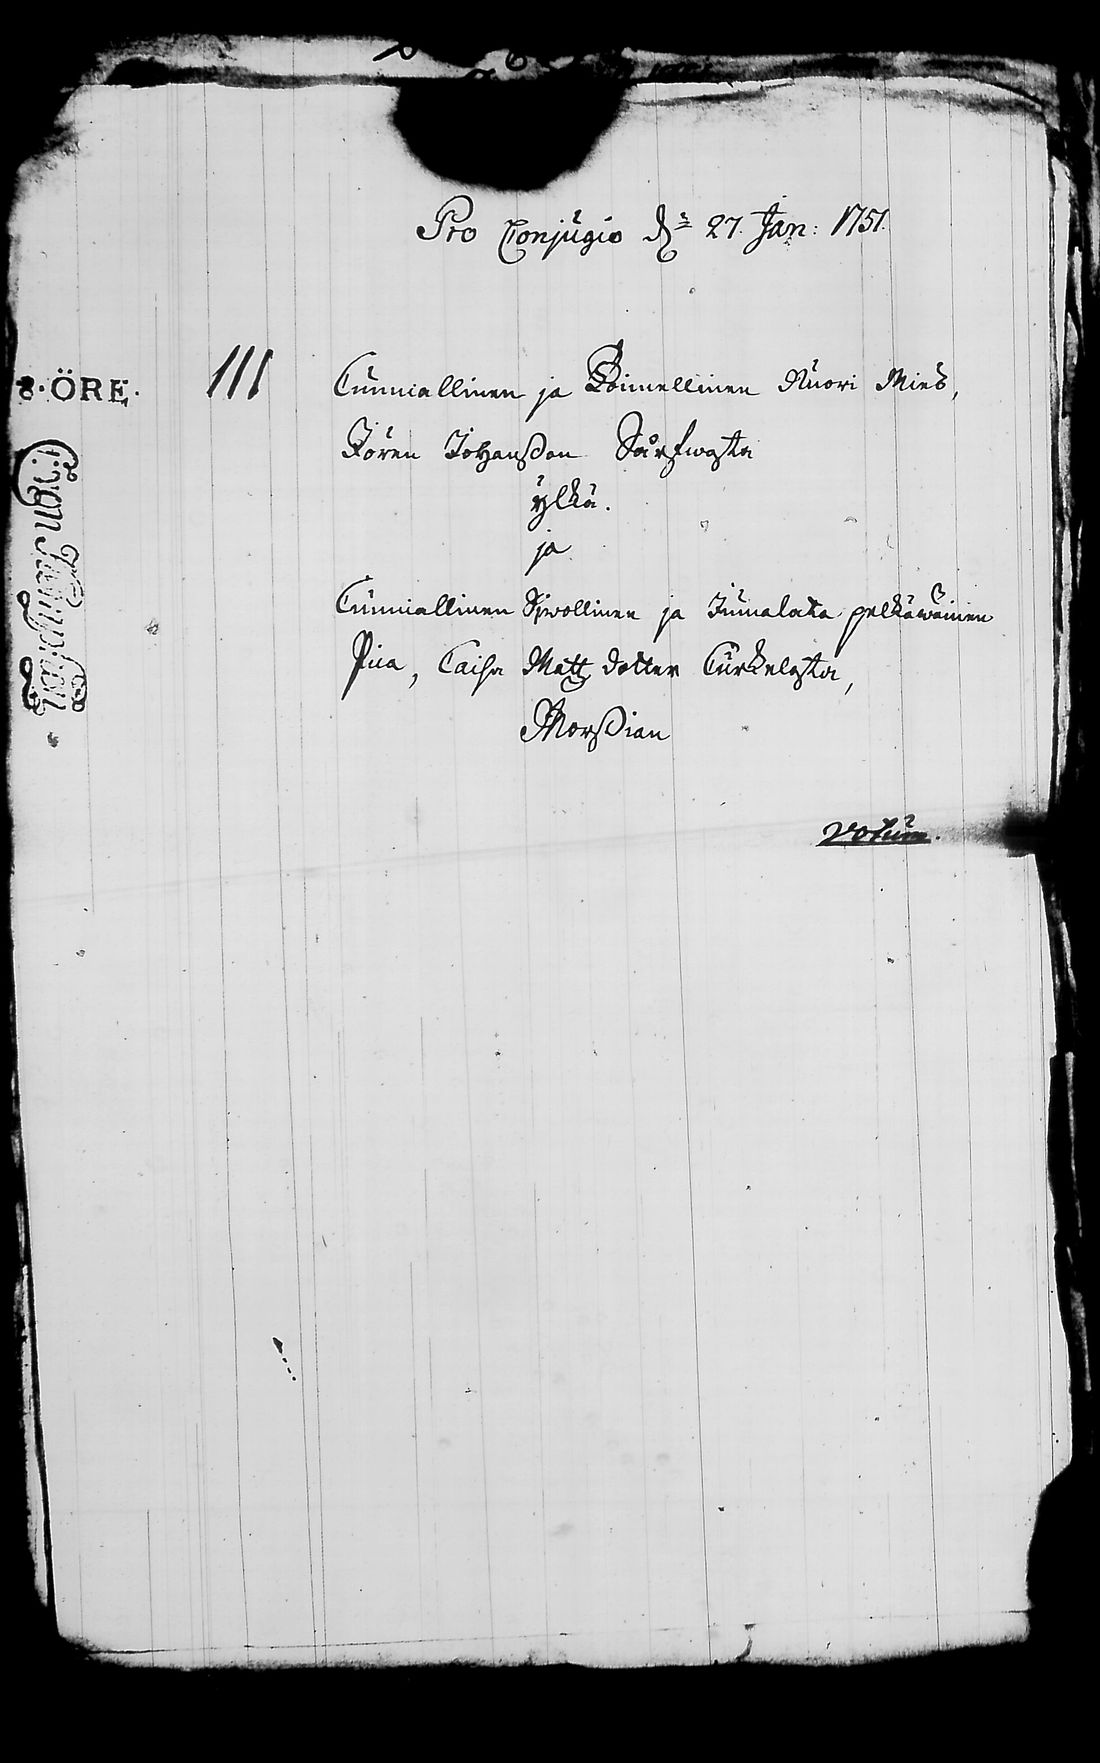 Pro Conjugio d: 27. Jan: 1751.
8. ÖRE.
111
Cunniallinen ja Toimellinen Nuori Mies,
Jören Johansson Särkwasta
ylkä.
ja
Cunniallinen Siwollinen ja Jumalata pelkäwäinen
Pica, Caisa Matts dotter Turkelasta,
Morsian
Votum.